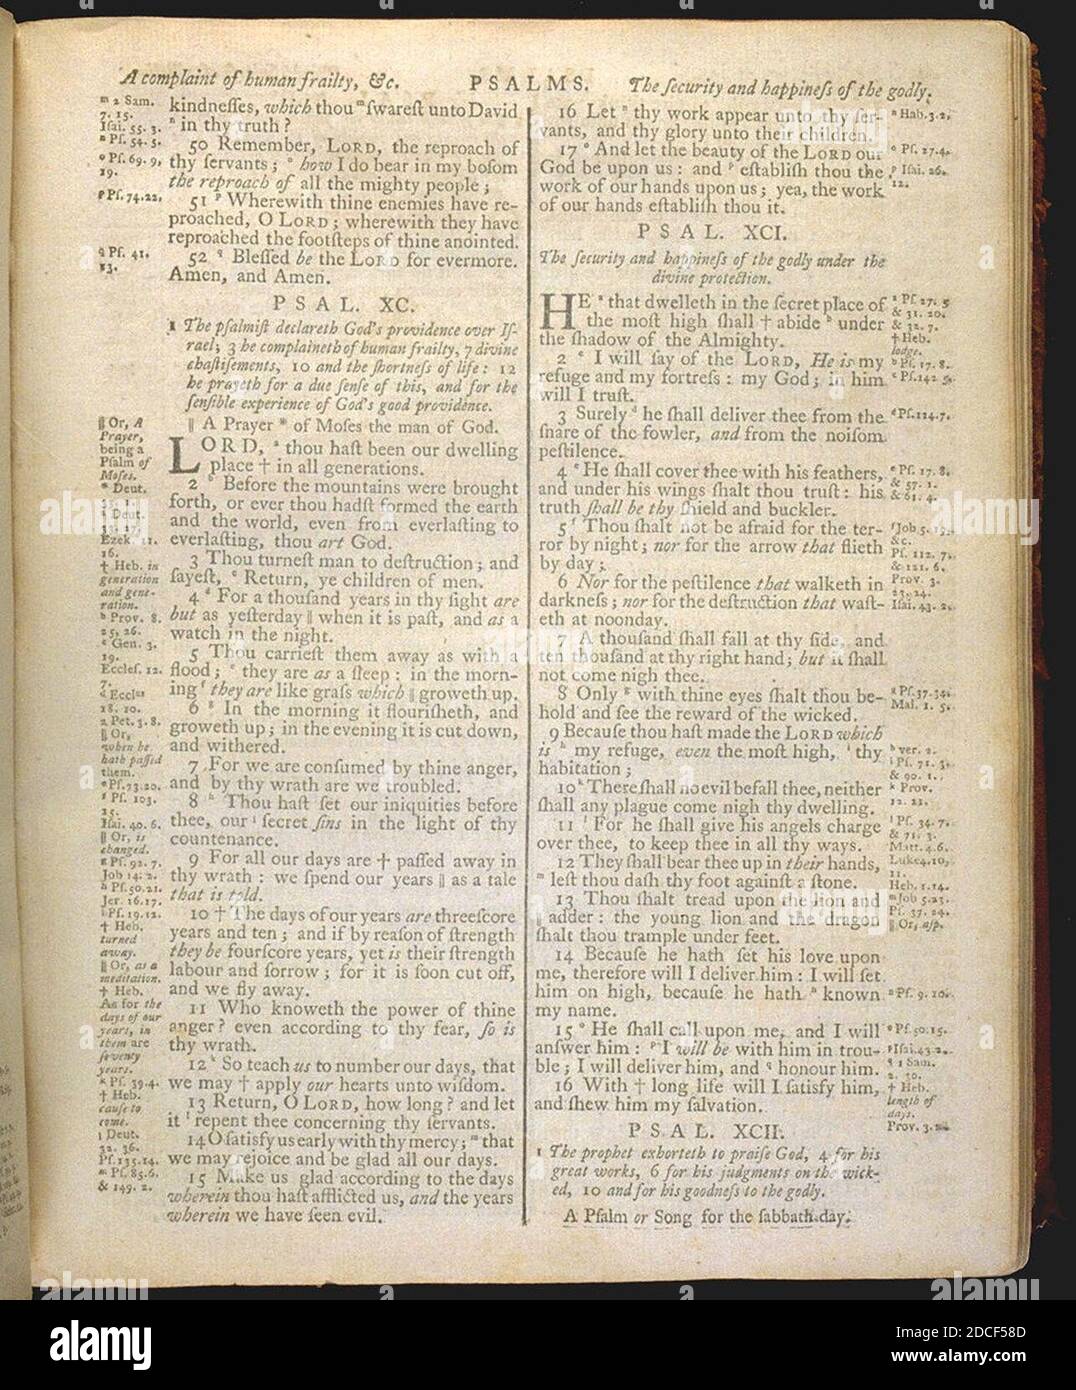 A complaint of human frailty, &c. PSALMS. The ſecurity and happineſs of the godly.
m 2 Sam.
7. 15.
Iſai. 55. 3.
n Pſ. 54. 5.
o Pſ. 69. 9,
19.
p Pſ. 74. 22.
q Pſ. 41.
13.
kindneſſes, which thou m ſwareſt unto David
n in thy truth?
50 Remember, LORD, the reproach of
thy ſervants; o how I do bear in my boſom
the reproach of all the mighty people;
51 p Wherewith thine enemies have re-
proached, O LORD; wherewith they have
reproached the footſteps of thine anointed.
52 q Bleſſed be the LORD for evermore.
Amen, and Amen.
PSAL. XC.
1 The pſalmiſt declareth God's providence over Iſ-
rael; 3 he complaineth of human frailty, 7 divine
chaſtiſements, 10 and the ſhortneſs of life: 12
he prayeth for a due ſenſe of this, and for the
ſenſible experience of God's good providence.
|| A Prayer * of Moſes the man of God.
LORD, a thou haſt been our dwelling
place † in all generations.
2 b Before the mountains were brought
forth, or ever thou hadſt formed the earth
and the world, even from everlaſting to
everlaſting, thou art God.
3 Thou turneſt man to deſtruction; and
ſayeſt, c Return, ye children of men.
4 d For a thouſand years in thy ſight are
but as yeſterday || when it is paſt, and as a
watch in the night.
5 Thou carrieſt them away as with a
flood; e they are as a ſleep: in the morn-
ing f they are like graſs which || groweth up.
6 g In the morning it flouriſheth, and
groweth up; in the evening it is cut down,
and withered.
7 For we are conſumed by thine anger,
and by thy wrath are we troubled.
8 h Thou haſt ſet our iniquities before
thee, our i ſecret ſins in the light of thy
countenance.
9 For all our days are † paſſed away in
thy wrath: we ſpend our years || as a tale
that is told.
10 † The days of our years are threeſcore
years and ten; and if by reaſon of ſtrength
they be fourſcore years, yet is their ſtrength
labour and ſorrow; for it is ſoon cut off,
and we fly away.
11 Who knoweth the power of thine
anger? even according to thy fear, ſo is
thy wrath.
12 k So teach us to number our days, that
we may † apply our hearts unto wiſdom.
13 Return, O LORD, how long? and let
it l repent thee concerning thy ſervants.
14 O ſatisfy us early with thy mercy; m that
we may rejoice and be glad all our days.
15 Make us glad according to the days
wherein thou haſt afflicted us, and the years
wherein we have ſeen evil.
|| Or, A
Prayer,
being a
Pſalm of
Moſes.
* Deut.
33. 1.
a Deut.
33. 27.
Ezek. 11.
16.
† Heb. in
generation
and gene-
ration.
b Prov. 8.
25, 26.
c Gen. 3.
19.
Eccleſ. 12.
7.
d Eccluſ
18. 10.
2 Pet. 3. 8.
|| Or,
when he
hath paſſed
them.
e Pſ. 73. 20.
f Pſ. 103.
15.
Iſai. 40. 6.
|| Or, is
changed.
g Pſ. 92. 7.
Job 14. 2.
h Pſ. 50. 21.
Jer. 16. 17.
i Pſ. 19. 12.
† Heb.
turned
away.
|| Or, as a
meditation.
† Heb.
As for the
days of our
years, in
them are
ſeventy
years.
k Pſ. 39. 4.
† Heb.
cauſe to
come.
l Deut.
32. 36.
Pſ. 135. 14.
m Pſ. 85. 6.
& 149. 2.
16 Let n thy work appear unto thy ſer-
vants, and thy glory unto their children.
17 o And let the beauty of the LORD our
God be upon us: and p eſtabliſh thou the
work of our hands upon us; yea, the work
of our hands eſtabliſh thou it.
PSAL. XCI.
The ſecurity and happineſs of the godly under the
divine protection.
HE a that dwelleth in the ſecret place of
the moſt high ſhall † abide b under
the ſhadow of the Almighty.
2 c I will ſay of the LORD, He is my
refuge and my fortreſs: my God; in him
will I truſt.
3 Surely d he ſhall deliver thee from the
ſnare of the fowler, and from the noiſom
peſtilence.
4 e He ſhall cover thee with his feathers,
and under his wings ſhalt thou truſt: his
truth ſhall be thy ſhield and buckler.
5 f Thou ſhalt not be afraid for the ter-
ror by night; nor for the arrow that flieth
by day;
6 Nor for the peſtilence that walketh in
darkneſs; nor for the deſtruction that waſt-
eth at noonday.
7 A thouſand ſhall fall at thy ſide, and
ten thouſand at thy right hand; but it ſhall
not come nigh thee.
8 Only g with thine eyes ſhalt thou be-
hold and ſee the reward of the wicked.
9 Becauſe thou haſt made the LORD which
is h my refuge, even the moſt high, i thy
habitation;
10 k There ſhall no evil befall thee, neither
ſhall any plague come nigh thy dwelling.
11 l For he ſhall give his angels charge
over thee, to keep thee in all thy ways.
12 They ſhall bear thee up in their hands,
m leſt thou daſh thy foot againſt a ſtone.
13 Thou ſhalt tread upon the lion and
|| adder: the young lion and the dragon
ſhalt thou trample under feet.
14 Becauſe he hath ſet his love upon
me, therefore will I deliver him: I will ſet
him on high, becauſe he hath n known
my name.
15 o He ſhall call upon me, and I will
anſwer him: p I will be with him in trou-
ble; I will deliver him, and q honour him.
16 With † long life will I ſatisfy him,
and ſhew him my ſalvation.
PSAL. XCII.
1 The prophet exhorteth to praiſe God, 4 for his
great works, 6 for his judgments on the wick-
ed, 10 and for his goodneſs to the godly.
A Pſalm or Song for the ſabbath-day.
n Hab. 3. 2.
o Pſ. 27. 4.
p Iſai. 26.
12.
a Pſ. 27. 5
& 31. 20.
& 32. 7.
† Heb.
lodge.
b Pſ. 17. 8.
c Pſ. 142 5.
d Pſ. 124. 7.
e Pſ. 17. 8.
& 57. 1.
& 61. 4.
f Job 5. 19,
&c.
Pſ. 112. 7.
& 121. 6.
Prov. 3.
23, 24.
Iſai. 43. 2.
g Pſ. 37. 34.
Mal. 1. 5.
h ver. 2.
i Pſ. 71. 3.
& 90. 1.
k Prov.
12. 21.
l Pſ. 34. 7.
& 71. 3.
Matt. 4. 6.
Luke 4. 10,
11.
Heb. 1. 14.
m Job 5. 23.
Pſ. 37. 24.
|| Or, aſp.
n Pſ. 9. 10.
o Pſ. 50. 15.
p Iſai. 43. 2.
q 1 Sam.
2. 30.
† Heb.
length of
days.
Prov. 3. 2.
alamy
Image ID: 2DCF58D
www.alamy.com